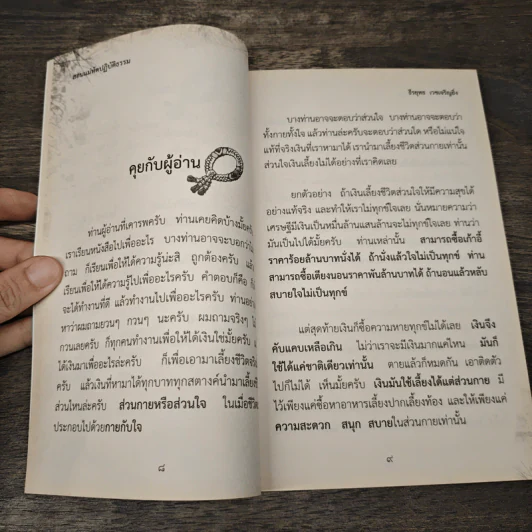 สอนแม่หัดปฏิบัติธรรม
คุยกับผู้อ่าน
ท่านผู้อ่านที่เคารพครับ ท่านเคยคิดบ้างมั้ยครับ
เราเรียนหนังสือไปเพื่ออะไร บางท่านอาจจะบอกว่า
ถาม ก็เรียนเพื่อให้ได้ความรู้น่ะสิ ถูกต้องครับ แล้ว
เรียนเพื่อให้ได้ความรู้ไปเพื่ออะไรครับ คำตอบก็คือ
จะได้ทำงานที่ดี แล้วทำงานไปเพื่ออะไรครับ ท่านอย่า
หาว่าผมถามยวนๆ กวนๆ นะครับ ผมถามจริงๆ
กวนเลยครับ ก็ทุกคนทำงานเพื่อให้ได้เงินใช่มั้ยครับ
ได้เงินมาเพื่ออะไรล่ะครับ ก็เพื่อเอามาเลี้ยงชีวิต
ครับ แล้วเงินที่หามาได้ทุกบาททุกสตางค์นำมาเลี้ยง
ส่วนไหนล่ะครับ ส่วนกายหรือส่วนใจ ในเมื่อชีวิต
ประกอบไปด้วยกายกับใจ
๘
ธีรยุทธ เวชเจริญยิ่ง
บางท่านอาจจะตอบว่าส่วนใจ บางท่านอาจจะตอบว่า
ทั้งกายทั้งใจ แล้วท่านล่ะครับจะตอบว่าส่วนใด หรือไม่แน่ใจ
แท้ที่จริงเงินที่เราหามาได้ เรานำมาเลี้ยงชีวิตส่วนกายเท่านั้น
ส่วนใจเงินเลี้ยงไม่ได้อย่างที่เราคิดเลย
ยกตัวอย่าง ถ้าเงินเลี้ยงชีวิตส่วนใจให้มีความสุขได้
อย่างแท้จริง และทำให้เราไม่ทุกข์ใจเลย นั่นหมายความว่า
เศรษฐีมีเงินเป็นหมื่นล้านแสนล้านจะไม่ทุกข์ใจเลย ท่านว่า
มันเป็นไปได้มั้ยครับ ท่านเหล่านั้น สามารถซื้อเก้าอี้
ราคาร้อยล้านบาทนั่งได้ ถ้านั่งแล้วใจไม่เป็นทุกข์ ท่าน
สามารถซื้อเตียงนอนราคาพันล้านบาทได้ ถ้านอนแล้วหลับ
สบายใจไม่เป็นทุกข์
แต่สุดท้ายเงินก็ซื้อความหายทุกข์ไม่ได้เลย เงินจึง
คับแคบเหลือเกิน ไม่ว่าเราจะมีเงินมากแค่ไหน มันก็
ใช้ได้แค่ชาติเดียวเท่านั้น ตายแล้วก็หมดกัน เอาติดตัว
ไปก็ไม่ได้ เห็นมั้ยครับ เงินมันใช้เลี้ยงได้แต่ส่วนกาย มี
ไว้เพียงแค่ซื้อหาอาหารเลี้ยงปากเลี้ยงท้อง และให้เพียงแค่
ความสะดวก สนุก สบายในส่วนกายเท่านั้น
๙